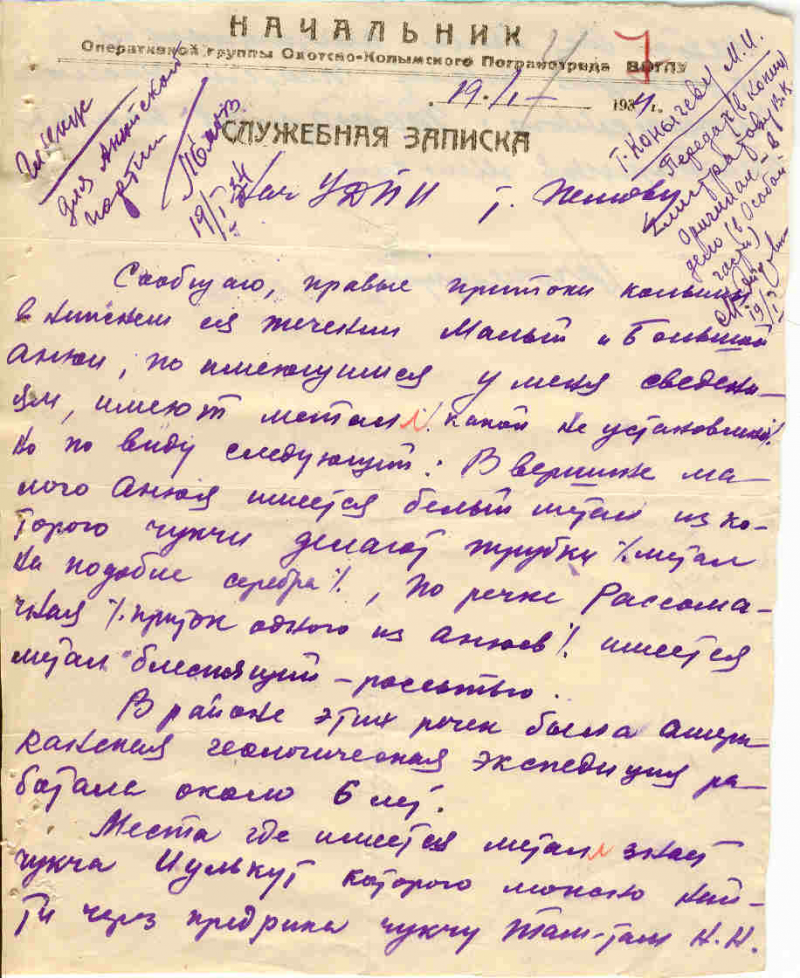 НАЧАЛЬНИК
Оперативной группы Охотско-Колымского Погранотряда ВОГПУ
19. I 1934.
СЛУЖЕБНАЯ ЗАПИСКА
для Анюйской
партии
19/I 34
т. Конычеву М.И.
Передать в копии
Оригинал - в
дело (в Особой
части)
19/I
Нач УДПИ т.
Сообщаю, правые притоки колымы
в нижнем ея течении Малый и Большой
Анюи, по имеющимся у меня сведени-
ям, имеют металл. какой не установлено%.
но по виду следующий: В вершине ма-
лого Анюя имеется белый метал из ко-
торого чукчи делают трубки %метал
на подобие серебра%, по речке Россома-
чная %приток одного из анюев%. имеется
метал блестящий - россыпью.
В районе этих речек была амери
канская геологическая экспедиция ра-
ботала около 6 лет.
Места где имеется металл знает
чукча Иулькут которого можно най-
ти через предрика чукчу Там-там Н.Н.